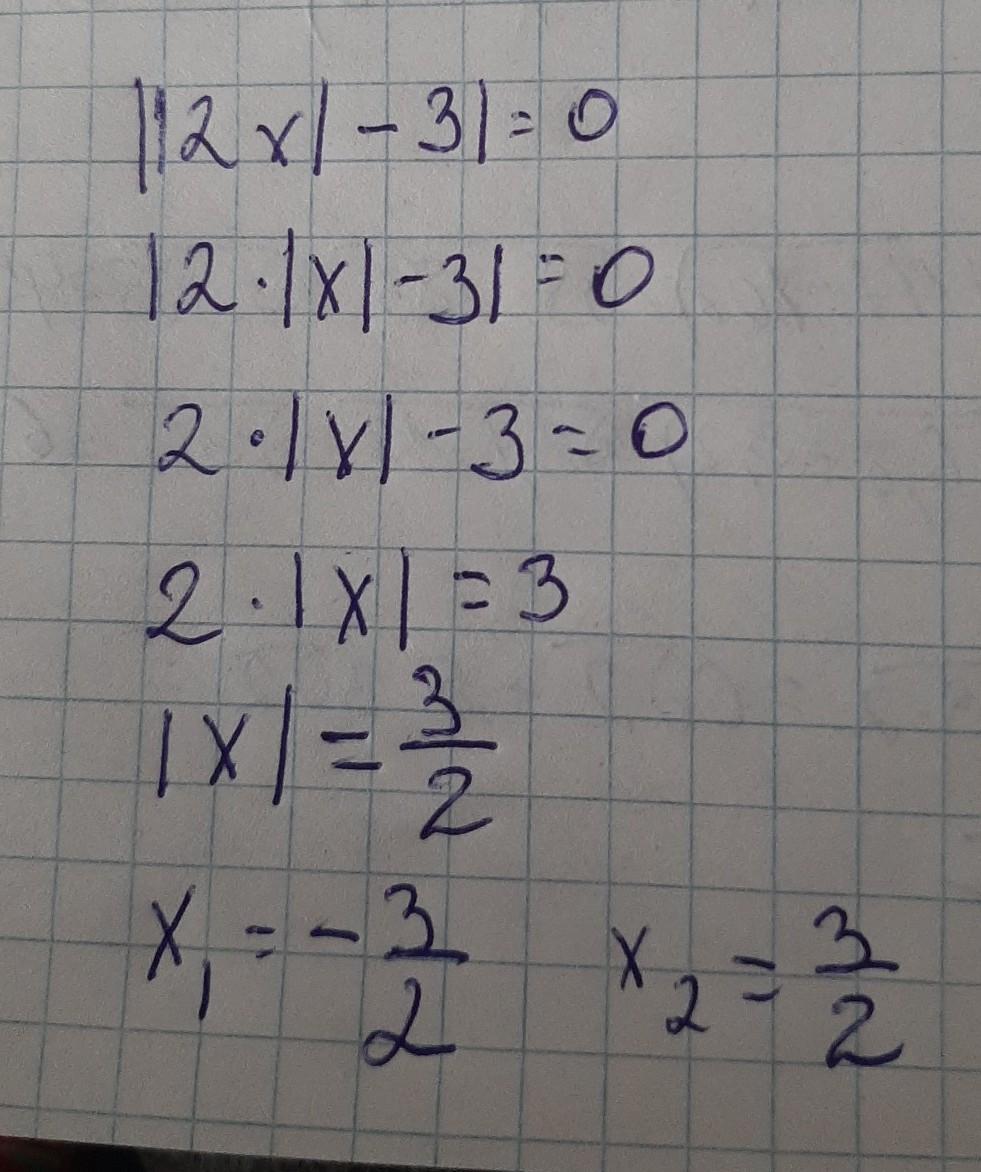 ||2x|-3|=0
|2·|x|-3|=0
2·|x|-3=0
2·|x|=3
|x|=3/2
x₁=-3/2 x₂=3/2